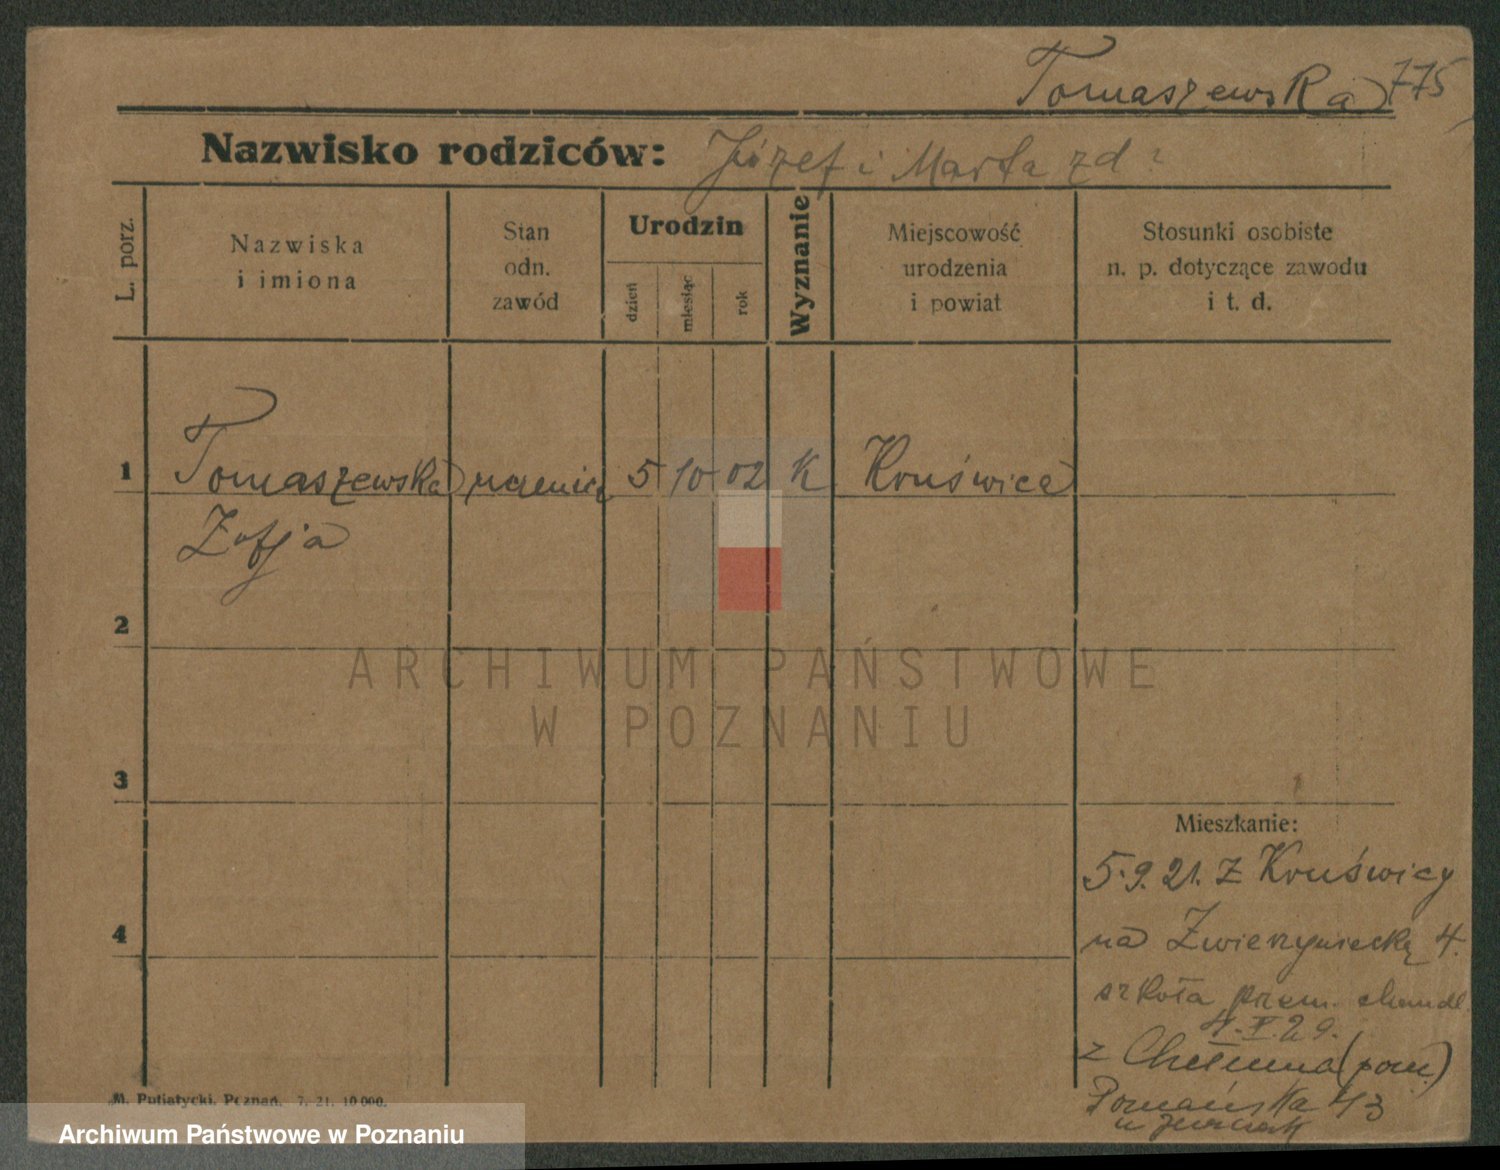 Tomaszewska 775
Nazwisko rodziców: Józef i Marta zd ?
L. porz.
Nazwiska
i imiona
Stan
odn.
zawód
Urodzin
dzień
miesiąc
rok
Wyznanie
Miejscowość
urodzenia
i powiat
Stosunki osobiste
n. p. dotyczące zawodu
i t. d.
1 Tomaszewska uczenica 5 10 02 K Kruświca
Zofja
2
ARCHIWUM PAŃSTWOWE
W POZNANIU
3
Mieszkanie:
5.9.21. z Kruświcy
4
na Zwierzyniecką 4.
szkoła przem. ihandl.
4.V.29.
z Chełmna (pom.)
Poznańska 43
M. Putiatycki, Poznań. 7. 21. 10 000.
Archiwum Państwowe w Poznaniu